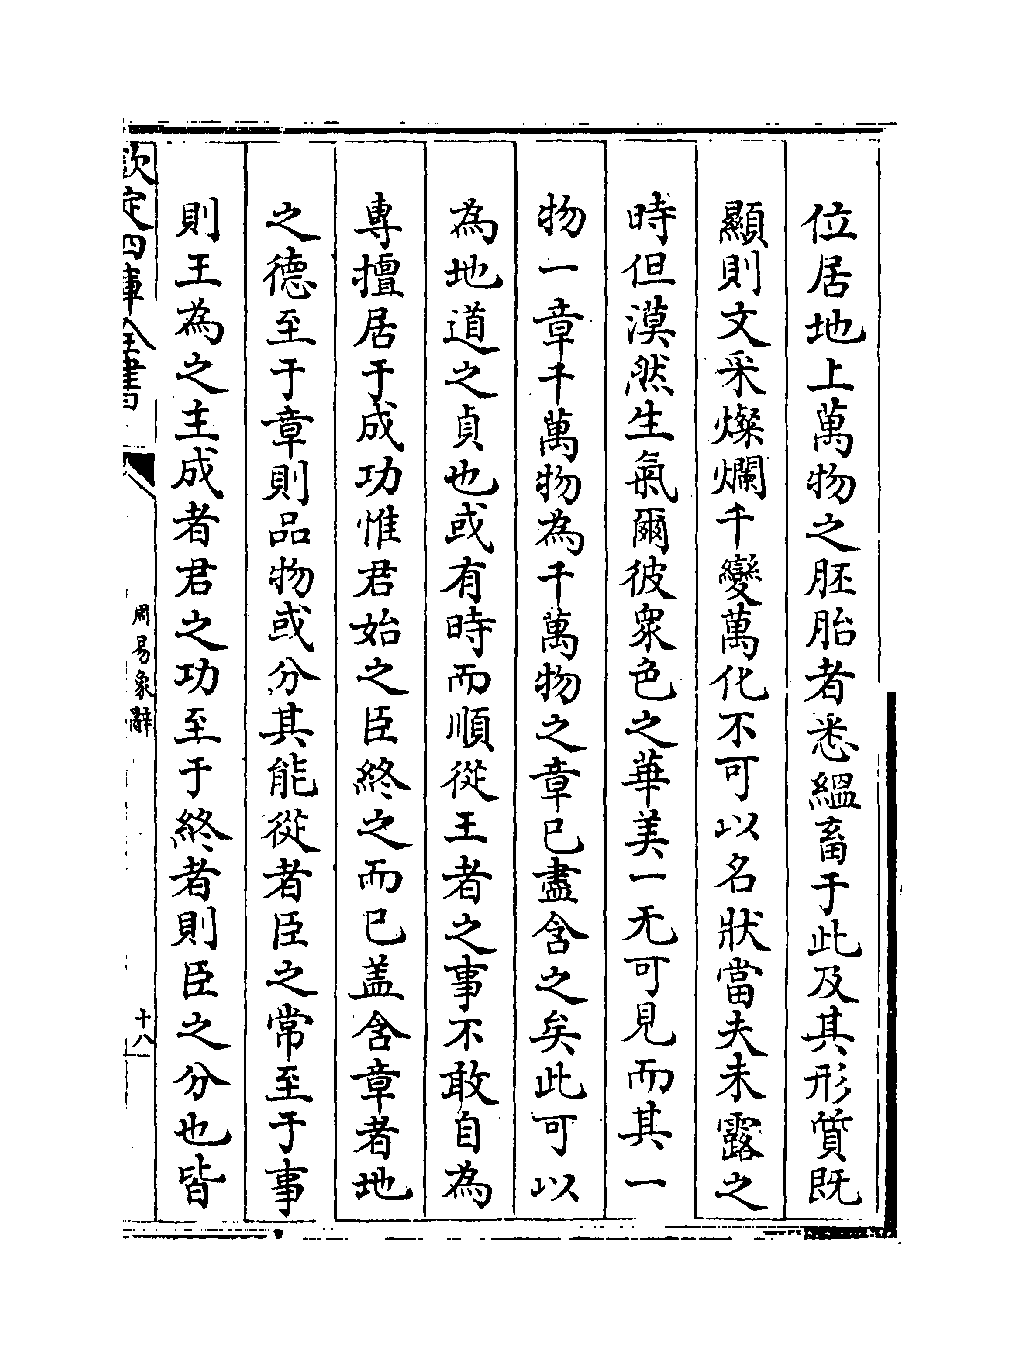 位居地上萬物之胚胎者悉緼畜于此及其形質既
顯則文采燦爛千變萬化不可以名狀當夫未露之
時但漠然生氣爾彼衆色之華美一无可見而其一
物一章千萬物為千萬物之章已盡含之矣此可以
為地道之貞也或有時而順從王者之事不敢自為
專擅居于成功惟君始之臣終之而已盖含章者地
之德至于章則品物或分其能從者臣之常至于事
則王為之主成者君之功至于終者則臣之分也皆
欽定四庫全書
周易象辭
十八